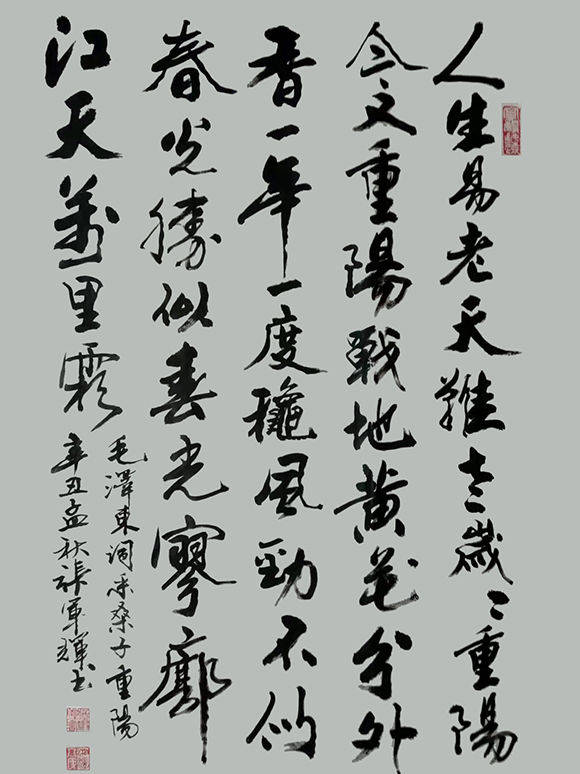 人生易老天難老歲〻重陽
今又重陽戰地黄花分外
香一年一度穐風勁不似
春光勝似春光寥廓
江天萬里霜
毛澤東詞采桑子重陽
辛丑孟秋張軍輝书